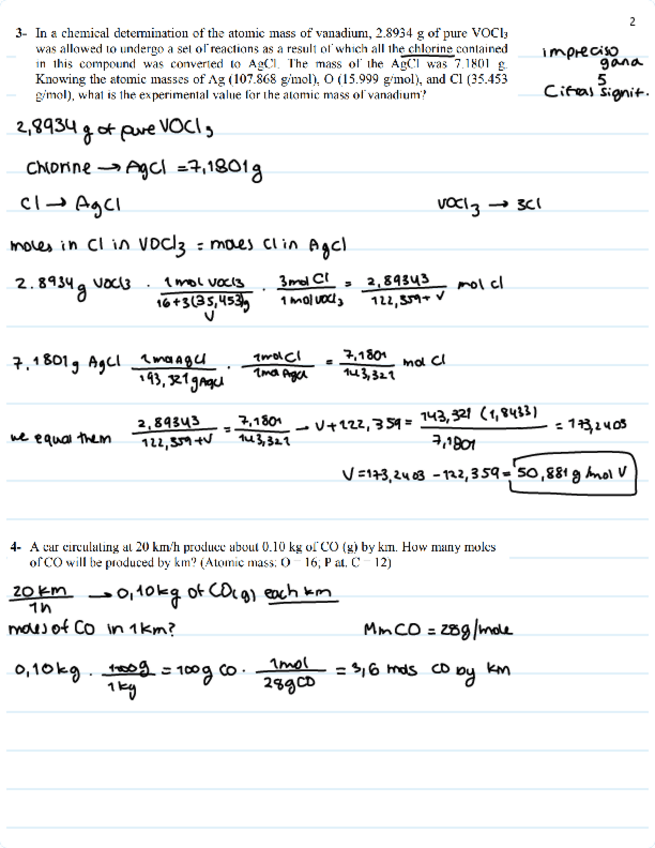 2
3- In a chemical determination of the atomic mass of vanadium, 2.8934 g of pure VOCl3
was allowed to undergo a set of reactions as a result of which all the chlorine contained
in this compound was converted to AgCl. The mass of the AgCl was 7.1801 g.
Knowing the atomic masses of Ag (107.868 g/mol), O (15.999 g/mol), and Cl (35.453
g/mol), what is the experimental value for the atomic mass of vanadium?
impreciso
gana
5
Cifras signit.
2,8934 g of pure VOCl3
Chlorine → AgCl = 7,1801g
Cl → AgCl
VOCl3 → 3Cl
moles in Cl in VOCl3 = moles Cl in AgCl
2.8934g VOCl3 · 1 mol VOCl3 / 16+3(35,453)g V · 3mol Cl / 1 mol VOCl3 = 2,89343 / 122,359+V mol cl
7,1801g AgCl 1 mol AgCl / 193,321g AgCl · 1mol Cl / 1mol AgCl = 7,1801 / 143,321 mol Cl
we equal them 2,89343 / 122,359+V = 7,1801 / 143,321 → V+122,359 = 143,321 (1,8433) / 7,1801 = 173,2403
V = 173,2403 - 122,359 = 50,881 g/mol V
4- A car circulating at 20 km/h produce about 0.10 kg of CO (g) by km. How many moles
of CO will be produced by km? (Atomic mass: O = 16; P at. C = 12)
20 km / 1h → 0,10kg of CO(g) each km
moles of CO in 1km?
Mm CO = 28g/mole
0,10kg · 1000g / 1kg = 100g CO · 1mol / 28gCO = 3,6 mols CO by km